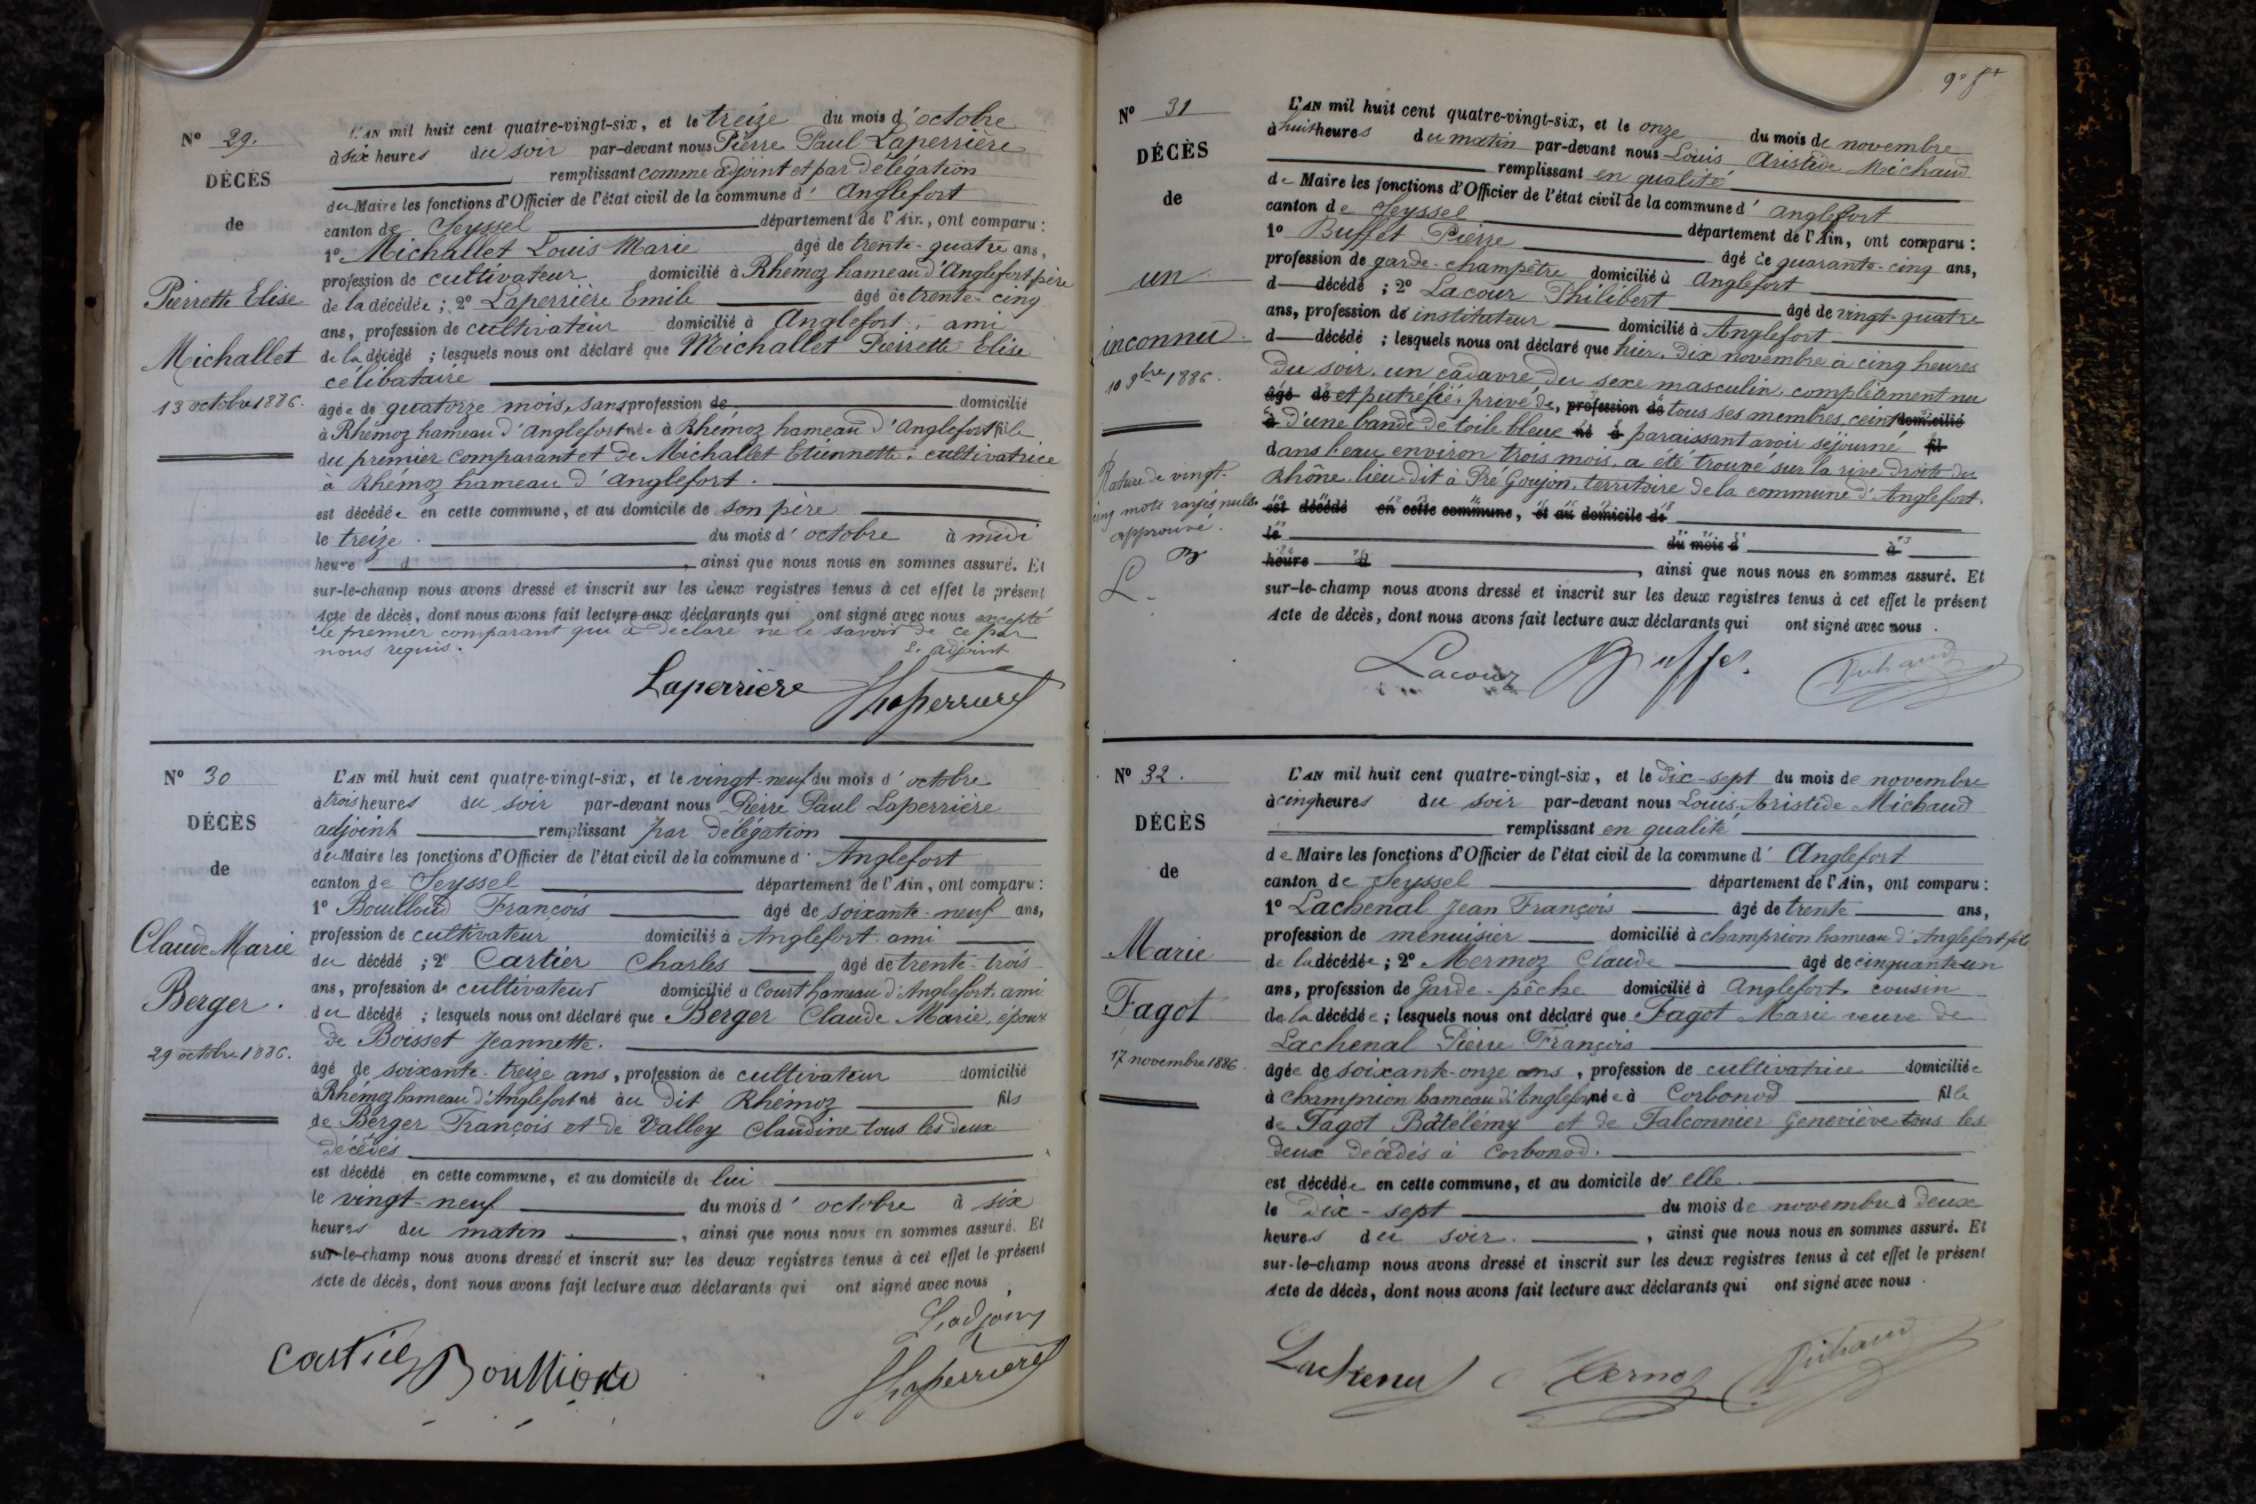 N° 29.
DÉCÈS
de
Pierrette Elise
Michallet
13 octobre 1886.
L'AN mil huit cent quatre-vingt-six, et le treize du mois d'octobre
à six heures du soir par-devant nous Pierre Paul Laperrière
remplissant comme adjoint et par délégation
du Maire les fonctions d'Officier de l'état civil de la commune d'Anglefort
canton de Seyssel département de l'Ain, ont comparu :
1° Michallet Louis Marie âgé de trente-quatre ans,
profession de cultivateur domicilié à Rhémoz hameau d'Anglefort père
de la décédée ; 2° Laperrière Emile âgé de trente-cinq
ans, profession de cultivateur domicilié à Anglefort, ami
de la décédé ; lesquels nous ont déclaré que Michallet Pierrette Elise
célibataire
âgée de quatorze mois, sans profession de domicilié
à Rhémoz hameau d'Anglefort née à Rhémoz hameau d'Anglefort fille
du premier comparant et de Michallet Etiennette, cultivatrice
à Rhémoz hameau d'Anglefort.
est décédée en cette commune, et au domicile de son père
le treize du mois d'octobre à midi
heure d , ainsi que nous nous en sommes assuré. Et
sur-le-champ nous avons dressé et inscrit sur les deux registres tenus à cet effet le présent
Acte de décès, dont nous avons fait lecture aux déclarants qui ont signé avec nous excepté
le premier comparant qui a déclaré ne le savoir de ce par
nous requis.
L'adjoint
Laperrière Laperrière
N° 30
DÉCÈS
de
Claude Marie
Berger.
29 octobre 1886.
L'AN mil huit cent quatre-vingt-six, et le vingt-neuf du mois d'octobre
à trois heures du soir par-devant nous Pierre Paul Laperrière
adjoint remplissant par délégation
du Maire les fonctions d'Officier de l'état civil de la commune d'Anglefort
canton de Seyssel département de l'Ain, ont comparu :
1° Bouilloud François âgé de soixante-neuf ans,
profession de cultivateur domicilié à Anglefort ami
du décédé ; 2° Cartier Charles âgé de trente-trois
ans, profession de cultivateur domicilié à Court hameau d'Anglefort ami
du décédé ; lesquels nous ont déclaré que Berger Claude Marie, époux
de Boisset Jeannette.
âgé de soixante-treize ans, profession de cultivateur domicilié
à Rhémoz hameau d'Anglefort né au dit Rhémoz fils
de Berger François et de Valley Claudine tous les deux
décédés
est décédé en cette commune, et au domicile de lui
le vingt-neuf du mois d'octobre à six
heures du matin , ainsi que nous nous en sommes assuré. Et
sur-le-champ nous avons dressé et inscrit sur les deux registres tenus à cet effet le présent
Acte de décès, dont nous avons fait lecture aux déclarants qui ont signé avec nous
L'adjoint
Cartier Bouilloud Laperrière
N° 31
DÉCÈS
de
un
inconnu.
10 9bre 1886.
Rature de vingt-
cinq mots rayés nuls
approuvé.
L. B
L'AN mil huit cent quatre-vingt-six, et le onze du mois de novembre
à huit heures du matin par-devant nous Louis Aristide Michaud
remplissant en qualité
de Maire les fonctions d'Officier de l'état civil de la commune d'Anglefort
canton de Seyssel département de l'Ain, ont comparu :
1° Buffet Pierre âgé de quarante-cinq ans,
profession de garde-champêtre domicilié à Anglefort
d décédé ; 2° Lacour Philibert âgé de vingt-quatre
ans, profession de instituteur domicilié à Anglefort
d décédé ; lesquels nous ont déclaré que hier, dix novembre à cinq heures
du soir, un cadavre du sexe masculin, complètement nu
âgé de et putréfié, privé de, profession de tous ses membres, ceint domicilié
à d'une bande de toile bleue né à paraissant avoir séjourné fil
dans l'eau environ trois mois, a été trouvé sur la rive droite du
Rhône, lieu dit à Pré Goujon, territoire de la commune d'Anglefort.
est décédé en cette commune, et au domicile de
le du mois d à
heure d , ainsi que nous nous en sommes assuré. Et
sur-le-champ nous avons dressé et inscrit sur les deux registres tenus à cet effet le présent
Acte de décès, dont nous avons fait lecture aux déclarants qui ont signé avec nous.
Lacour Buffet Michaud
N° 32.
DÉCÈS
de
Marie
Fagot
17 novembre 1886.
L'AN mil huit cent quatre-vingt-six, et le dix-sept du mois de novembre
à cinq heures du soir par-devant nous Louis Aristide Michaud
remplissant en qualité
de Maire les fonctions d'Officier de l'état civil de la commune d'Anglefort
canton de Seyssel département de l'Ain, ont comparu :
1° Lachenal Jean François âgé de trente ans,
profession de menuisier domicilié à Champrion hameau d'Anglefort fils
de la décédée ; 2° Mermoz Claude âgé de cinquante un
ans, profession de Garde-pêche domicilié à Anglefort, cousin
de la décédée ; lesquels nous ont déclaré que Fagot Marie veuve de
Lachenal Pierre François
âgée de soixante-onze ans, profession de cultivatrice domiciliée
à Champrion hameau d'Anglefort née à Corbonod fille
de Fagot Batélémy et de Falconnier Geneviève tous les
deux décédés à Corbonod.
est décédée en cette commune, et au domicile de elle
le dix-sept du mois de novembre à deux
heures du soir. , ainsi que nous nous en sommes assuré. Et
sur-le-champ nous avons dressé et inscrit sur les deux registres tenus à cet effet le présent
Acte de décès, dont nous avons fait lecture aux déclarants qui ont signé avec nous.
Lachenal C Mermoz Michaud